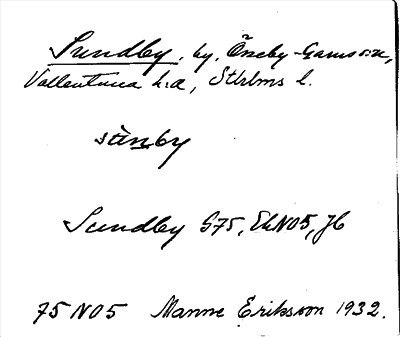 Sundby, by, Össeby-Garns sn,
Vallentuna h:d, Sthlms l.
sùnby
Sundby G75, EkN05, Jb
75 N05 Manne Eriksson 1932.